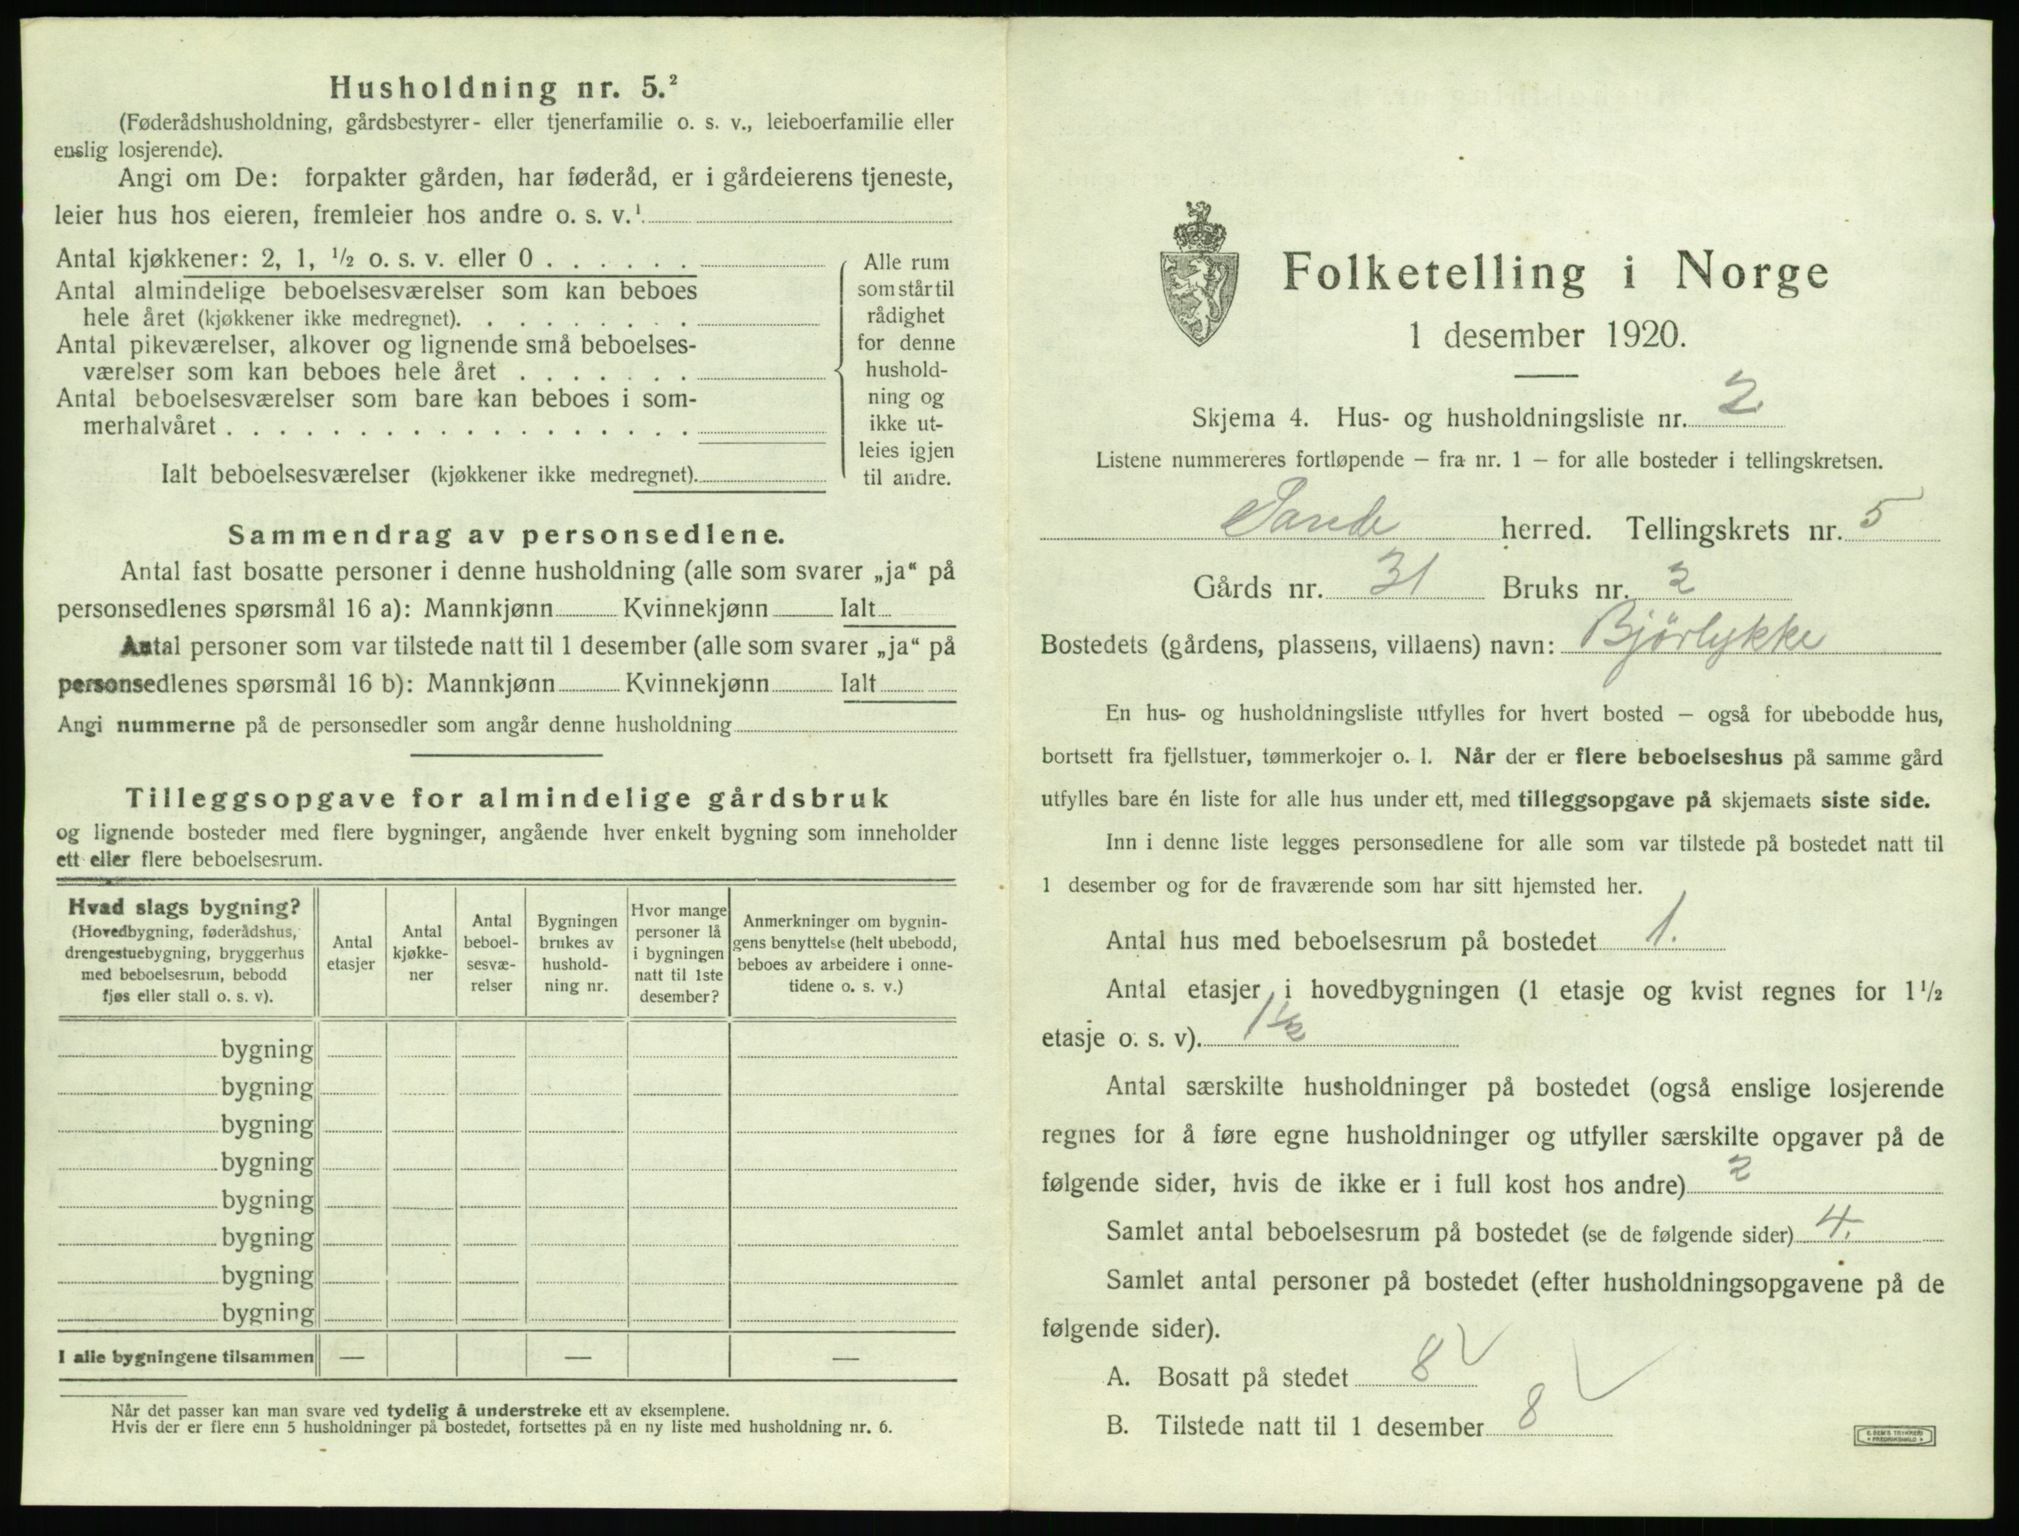 Husholdning nr. 5.²
(Føderådshusholdning, gårdsbestyrer- eller tjenerfamilie o. s. v., leieboerfamilie eller
enslig losjerende).
Angi om De: forpakter gården, har føderåd, er i gårdeierens tjeneste,
leier hus hos eieren, fremleier hos andre o. s. v.¹
Antal kjøkkener: 2, 1, ½ o. s. v. eller 0 . . . . . .
Antal almindelige beboelsesværelser som kan beboes
hele året (kjøkkener ikke medregnet). . . . . . . . .
Antal pikeværelser, alkover og lignende små beboelses-
værelser som kan beboes hele året . . . . . . .
Antal beboelsesværelser som bare kan beboes i som-
merhalvåret . . . . . . . . . . . . . . . . . .
Ialt beboelsesværelser (kjøkkener ikke medregnet).
Alle rum
som står til
rådighet
for denne
hushold-
ning og
ikke ut-
leies igjen
til andre.
Sammendrag av personsedlene.
Antal fast bosatte personer i denne husholdning (alle som svarer „ja“ på
personsedlenes spørsmål 16 a): Mannkjønn Kvinnekjønn Ialt
Antal personer som var tilstede natt til 1 desember (alle som svarer „ja“ på
personsedlenes spørsmål 16 b): Mannkjønn Kvinnekjønn Ialt
Angi nummerne på de personsedler som angår denne husholdning
Tilleggsopgave for almindelige gårdsbruk
og lignende bosteder med flere bygninger, angående hver enkelt bygning som inneholder
ett eller flere beboelsesrum.
Hvad slags bygning?
(Hovedbygning, føderådshus,
drengestuebygning, bryggerhus
med beboelsesrum, bebodd
fjøs eller stall o. s. v).
Antal
etasjer
Antal
kjøkke-
ner
Antal
beboel-
sesvæ-
relser
Bygningen
brukes av
hushold-
ning nr.
Hvor mange
personer lå
i bygningen
natt til 1ste
desember?
Anmerkninger om bygnin-
gens benyttelse (helt ubebodd,
beboes av arbeidere i onne-
tidene o. s. v.)
bygning
bygning
bygning
bygning
bygning
bygning
bygning
bygning
I alle bygningene tilsammen — — —
Når det passer kan man svare ved tydelig å understreke ett av eksemplene.
Hvis der er flere enn 5 husholdninger på bostedet, fortsettes på en ny liste med husholdning nr. 6.
Folketelling i Norge
1 desember 1920.
Skjema 4. Hus- og husholdningsliste nr. 2.
Listene nummereres fortløpende — fra nr. 1 — for alle bosteder i tellingskretsen.
Sande herred. Tellingskrets nr. 5
Gårds nr. 31 Bruks nr. 2
Bostedets (gårdens, plassens, villaens) navn: Bjørlykke
En hus- og husholdningsliste utfylles for hvert bosted — også for ubebodde hus,
bortsett fra fjellstuer, tømmerkojer o. l. Når der er flere beboelseshus på samme gård
utfylles bare én liste for alle hus under ett, med tilleggsopgave på skjemaets siste side.
Inn i denne liste legges personsedlene for alle som var tilstede på bostedet natt til
1 desember og for de fraværende som har sitt hjemsted her.
Antal hus med beboelsesrum på bostedet 1.
Antal etasjer i hovedbygningen (1 etasje og kvist regnes for 1½
etasje o. s. v). 1½
Antal særskilte husholdninger på bostedet (også enslige losjerende
regnes for å føre egne husholdninger og utfyller særskilte opgaver på de
følgende sider, hvis de ikke er i full kost hos andre) 2
Samlet antal beboelsesrum på bostedet (se de følgende sider) 4.
Samlet antal personer på bostedet (efter husholdningsopgavene på de
følgende sider).
A. Bosatt på stedet 8 ✓
B. Tilstede natt til 1 desember 8 ✓